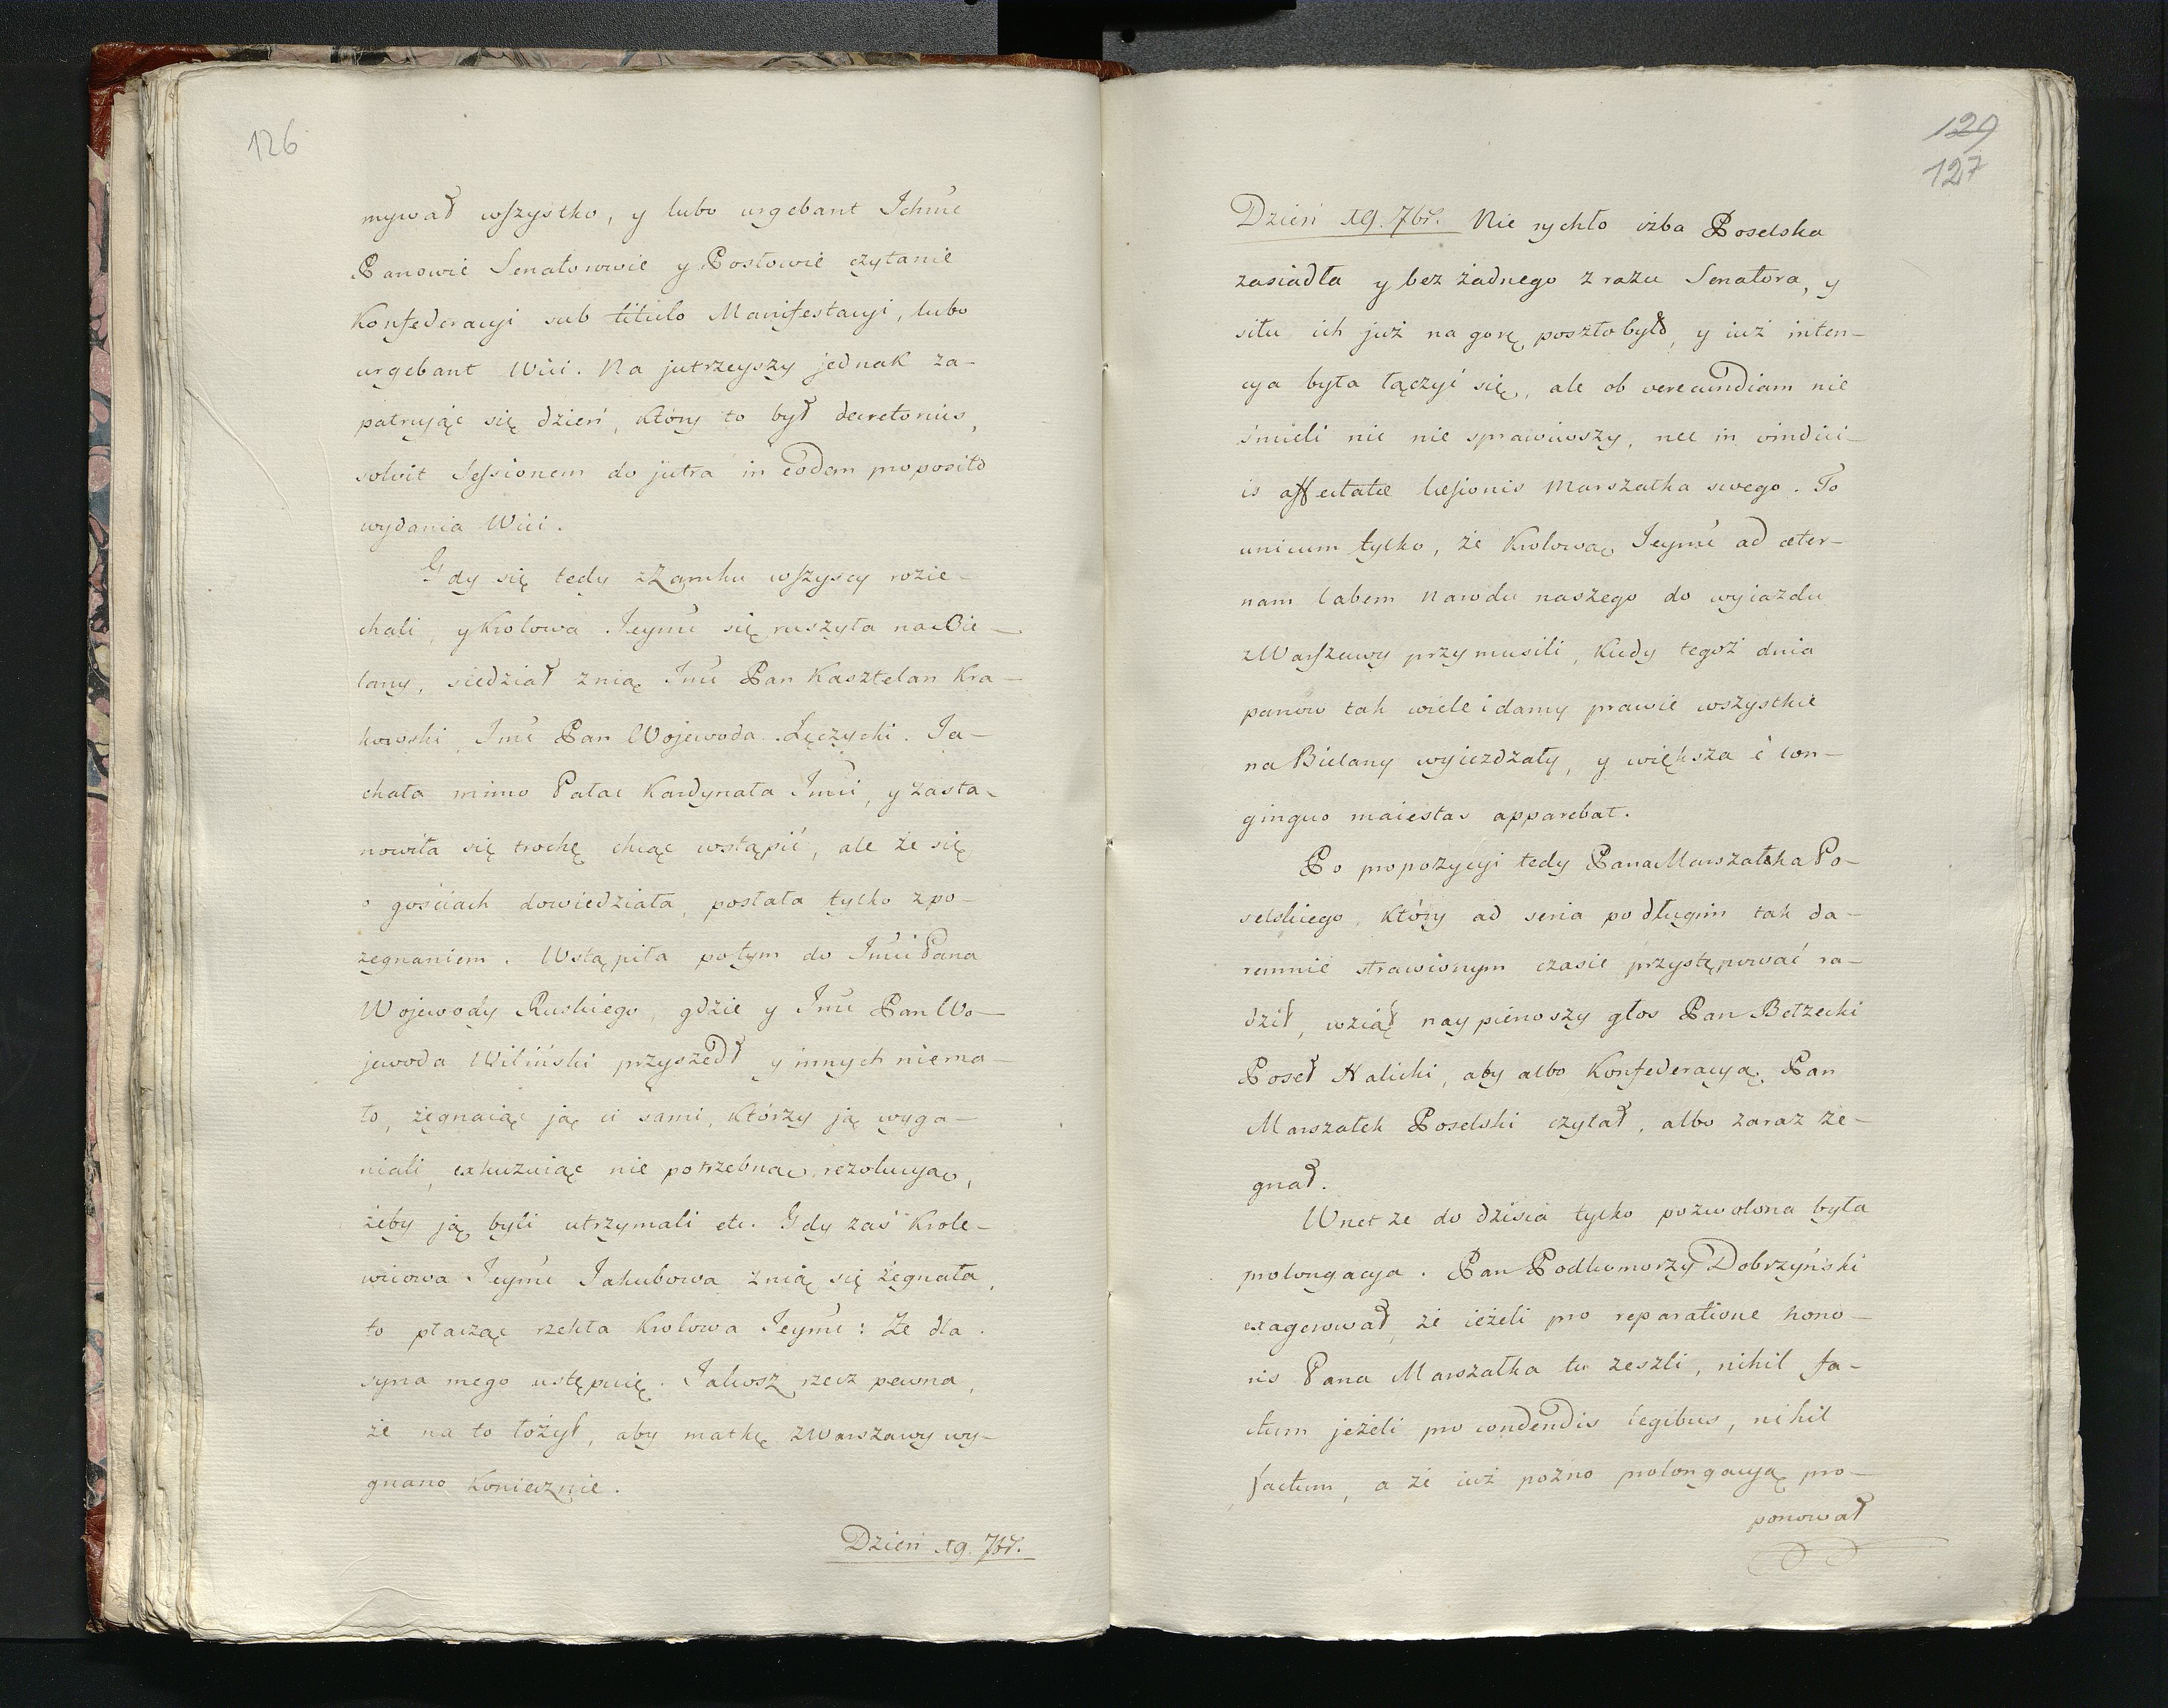 126
mywał wszystko, y lubo urgebant Ichmć
Panowie Senatorowie y Posłowie czytanie
Konfederacyi sub titulo Manifestacyi, lubo
urgebant Wici. Na jutrzeyszy jednak za-
patrując się dzień, który to był decretorius,
solvit Sessionem do jutra in eodem proposito
wydania Wici.
Gdy się tedy z Zamku wszyscy rozie-
chali, y Krolowa Jeymć się ruszyła na Bie-
lany, siedział z nią Jmć Pan Kasztelan Kra-
kowski, Jmć Pan Wojewoda Łęczycki. Ja-
chała mimo Pałac Kardynała Jmci, y zasta-
nowiła się trochę chcąc wstąpić, ale że się
o gościach dowiedziała, postała tylko z po-
żegnaniem. Wstąpiła potym do Jmci Pana
Wojewody Ruskiego, gdzie y Jmć Pan Wo-
jewoda Wiliński przyszedł y innych niema-
ło, żegnaiąc ją ci sami, którzy ją wyga-
niali, exkuzuiąc nie potrzebną rezolucyą,
żeby ją byli utrzymali etc. Gdy zaś Krole-
wicowa Jeymć Jakubowa z nią się żegnała,
to płacząc rzekła Krolowa Jeymć: Że dla
syna mego ustępuię. Jakosz rzecz pewna,
że na to łożył, aby matkę z Warszawy wy-
gnano koniecznie.
Dzień 19. 7br.
129
127
Dzień 19. 7br. Nie rychło izba Poselska
zasiadła y bez żadnego z razu Senatora, y
siłu ich już na gorę poszło było, y iuż inten-
cya była łączyć się, ale ob verecundiam nie
śmieli nic nie sprawiwszy, nec in vindici-
is affectatæ læsionis Marszałka swego. To
unicum tylko, że Krolową Jeymć ad æter-
nam labem Narodu naszego do wyiazdu
z Warszawy przymusili, kiedy tegoż dnia
panow tak wiele i damy prawie wszystkie
na Bielany wyieżdżały, y większa è lon-
ginquo maiestas apparebat.
Po propozycyi tedy Pana Marszałka Po-
selskiego, który ad seria po długim tak da-
remnie strawionym czasie przystępować ra-
dził, wziął naypierwszy głos Pan Bełzecki
Poseł Halicki, aby albo Konfederacyą Pan
Marszałek Poselski czytał, albo zaraz że-
gnał.
Wnet że do dzisia tylko pozwolona była
prolongacya. Pan Podkomorzy Dobrzyński
exagerował, że ieżeli pro reparatione hono-
ris Pana Marszałka tu zeszli, nihil fa-
ctum jeżeli pro condendis legibus, nihil
factum, a że iuż pozno prolongacyą pro-
ponował